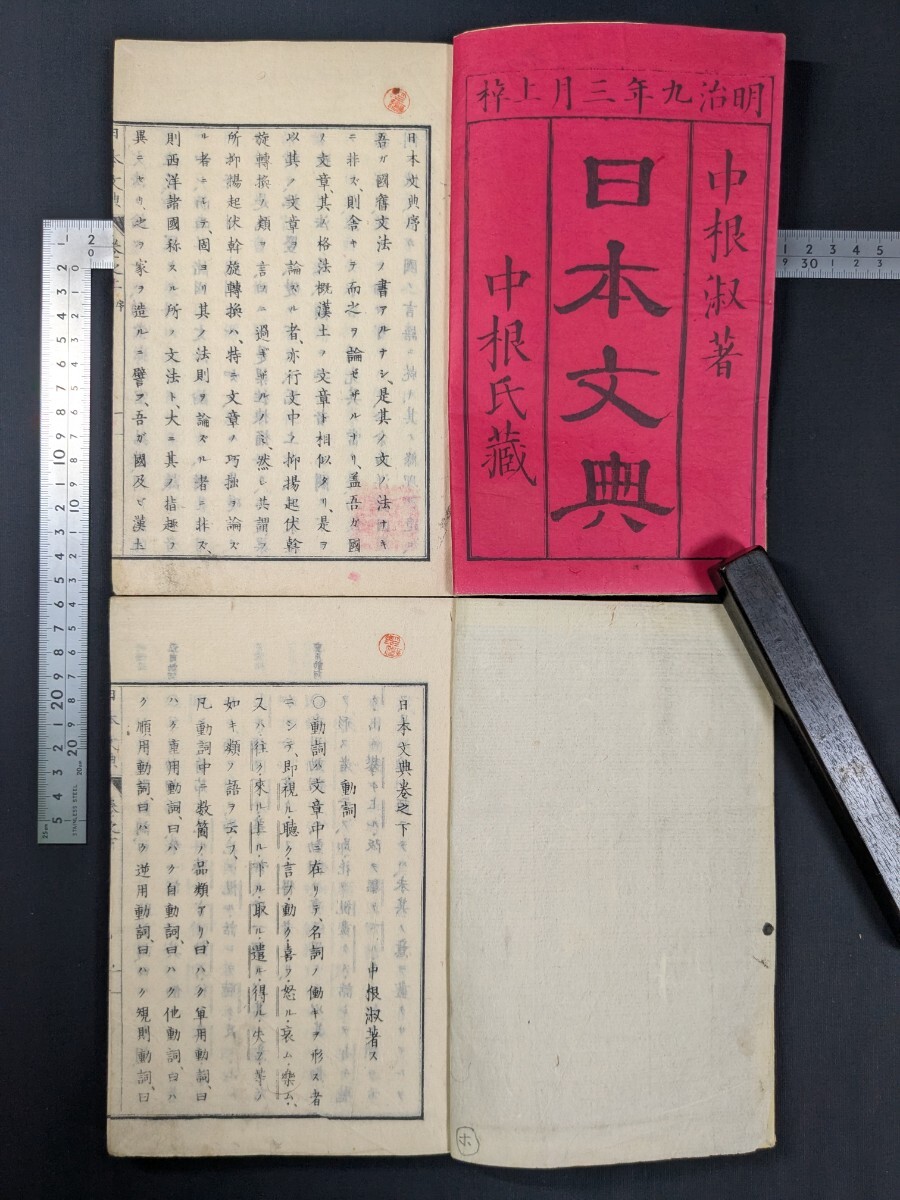 明治九年三月上梓
中根淑著
日本文典
中根氏藏
日本文典序
吾ガ國舊文法ノ書アルナシ、是其ノ文ノ法ナキ
ニ非ズ、則舍キテ而之ヲ論ゼザルナリ、蓋吾ガ國
ノ文章、其ノ格法概漢土ノ文章ト相似タリ、是ヲ
以其ノ文章ヲ論ズル者、亦行文中上抑揚起伏斡
旋轉換ノ類ヲ言フニ過ギザルノミ、然レ共謂フ
所抑揚起伏斡旋轉換ハ、特ニ文章ノ巧拙ヲ論ズ
ル者ニシテ、固ヨリ其ノ法則ヲ論ズル者ニ非ズ、
則西洋諸國称スル所ノ文法ト、大ニ其ノ指趣ヲ
異ニセリ、之ヲ家ヲ造ルニ譬フ、吾ガ國及ビ漢土
日本文典 卷之上 序
日本文典卷之下
中根淑著ス
動詞
〇動詞ハ文章中ニ在リテ、名詞ノ働キヲ形ス者
ニシテ、即視ル・聴ク・言フ・動ク・喜フ・怒ル・哀ム・樂ム、
又ハ往ク・來ル・上ル・下ル・取ル・遣ル・得ル・失フ・等ノ
如キ類ノ語ヲ云フ、
凡動詞中ニ数箇ノ品類アリ、曰ハク單用動詞、曰
ハク重用動詞、曰ハク自動詞、曰ハク他動詞、曰ハ
ク順用動詞、曰ハク逆用動詞、曰ハク規則動詞、曰
日本文典 卷之下
ホ